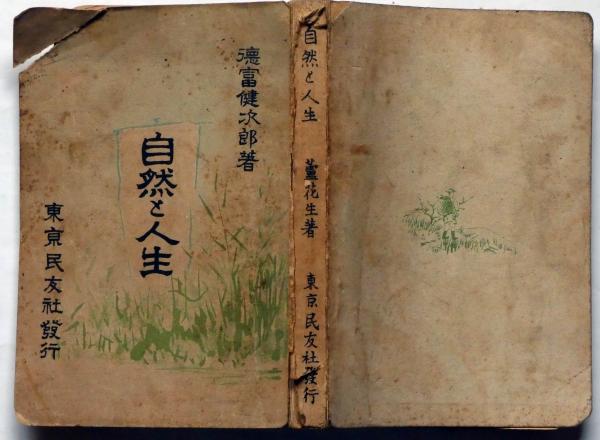 德富健次郎著
自然と人生
東京民友社發行
自然と人生
蘆花生著
東京民友社發行